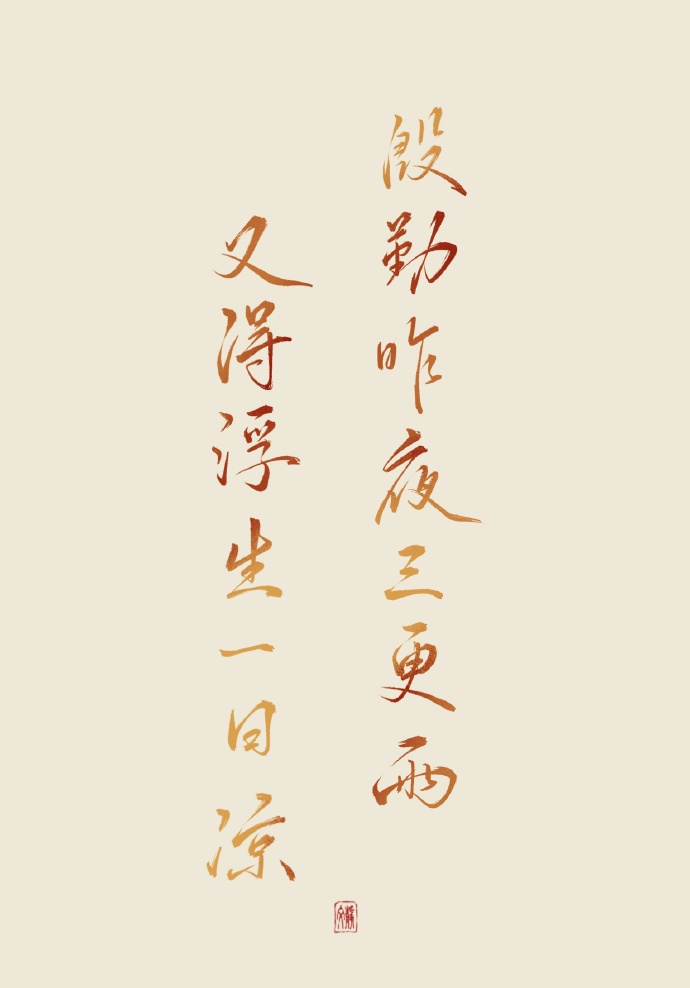 殷勤昨夜三更雨
又得浮生一日凉